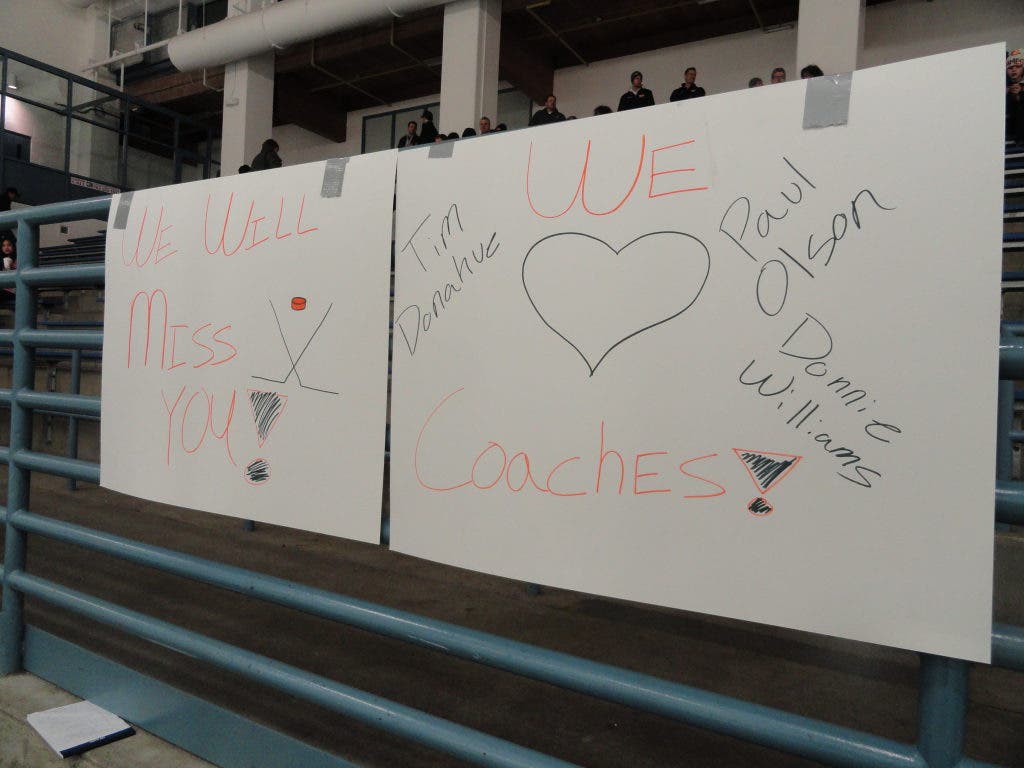 WE WILL
MISS
YOU!
WE
Tim
Donahue
Paul
Olson
Donnie
Williams
Coaches!